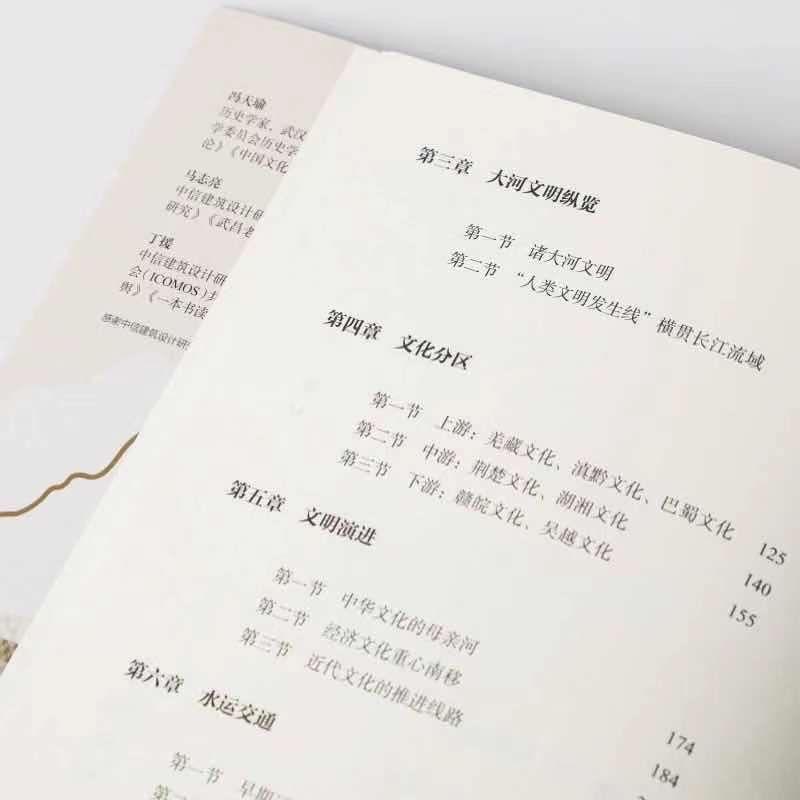 冯天瑜
历史学家，武汉
学委员会历史学
论》《中国文化
马志亮
中信建筑设计研
研究》《武昌老
丁援
中信建筑设计研
会（ICOMOS）共
舆》《一本书读
感谢中信建筑设计研
第三章 大河文明纵览
第一节 诸大河文明
第二节 “人类文明发生线”横贯长江流域
第四章 文化分区
第一节 上游：羌藏文化、滇黔文化、巴蜀文化 125
第二节 中游：荆楚文化、湖湘文化 140
第三节 下游：赣皖文化、吴越文化 155
第五章 文明演进
第一节 中华文化的母亲河 174
第二节 经济文化重心南移 184
第三节 近代文化的推进线路
第六章 水运交通
第一节 早期
第二